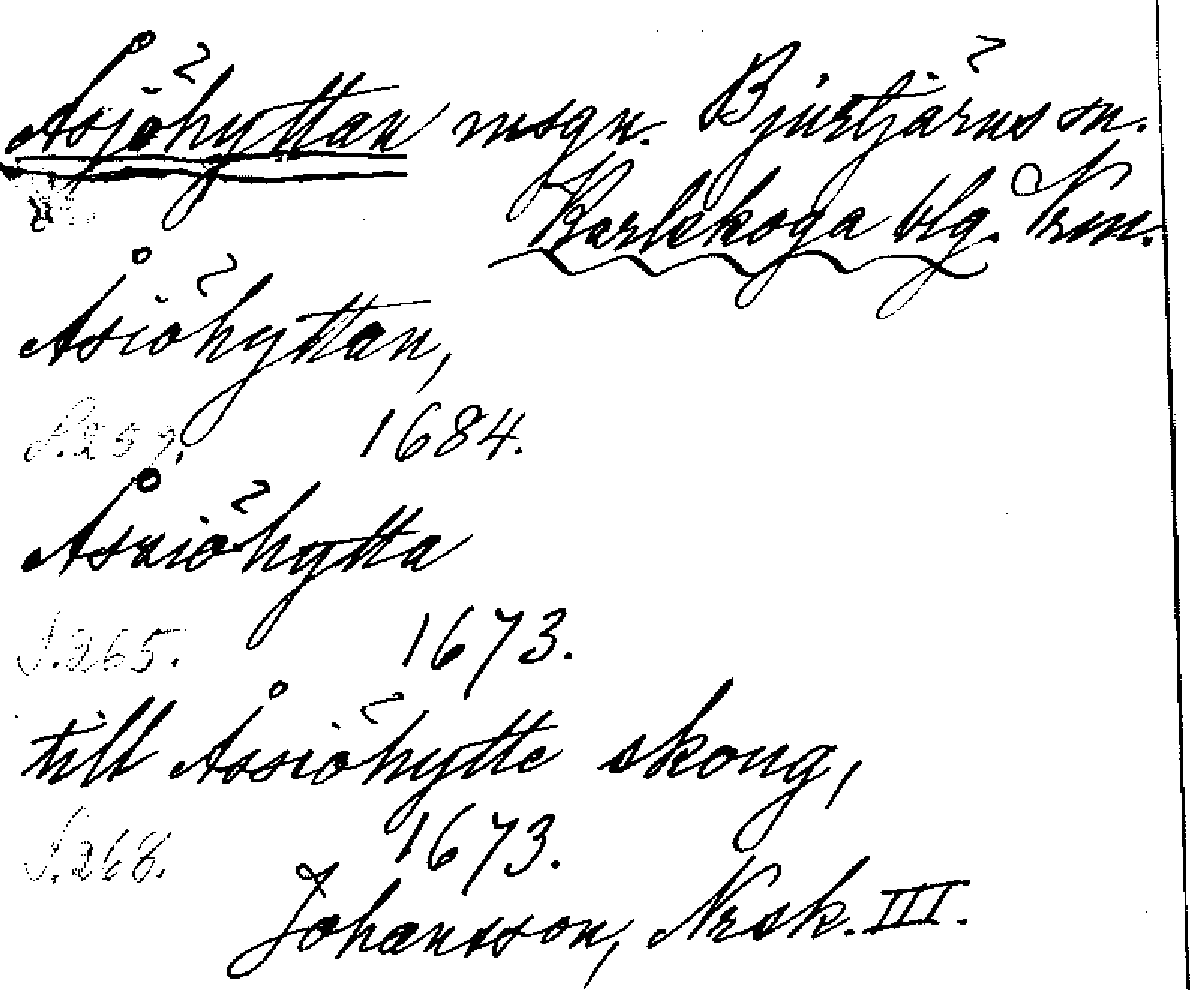 Åsjöhyttan msgn. Bjurtjärns sn.
Karlskoga blg. Vrm.
Åsiöhyttan,
S. 259. 1684.
Åssiöhytta
S. 265. 1673.
till Åssiöhytte skoug,
S. 268. 1673.
Johansson, Nrsk. III.